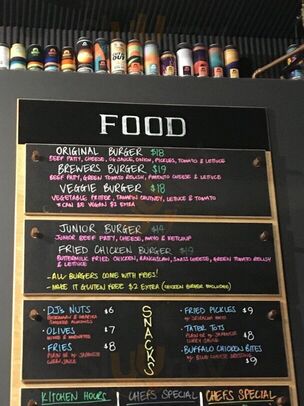 FOOD
ORIGINAL BURGER $18
BEEF PATTY, CHEESE, OG SAUCE, ONION, PICKLES, TOMATO & LETTUCE
BREWERS BURGER $19
BEEF PATTY, GREEN TOMATO RELISH, PIMENTO CHEESE & LETTUCE
VEGGIE BURGER $18
VEGETABLE FRITTER, TAMARIN CHUTNEY, LETTUCE & TOMATO
* CAN BE VEGAN $2 EXTRA
JUNIOR BURGER $14
JUNIOR BEEF PATTY, CHEESE, MAYO & KETCHUP
FRIED CHICKEN BURGER $19
BUTTERMILK FRIED CHICKEN, RANCHSLAW, SWISS CHEESE, GREEN TOMATO RELISH
& LETTUCE
- ALL BURGERS COME WITH FRIES!
- MAKE IT GLUTEN FREE $2 EXTRA (CHICKEN BURGER EXCLUDED)
SNACKS
• DJ'S NUTS $6
ROSEMARY &
• OLIVES $7
MIXED &
• FRIES $8
PLAIN OR W/ JAPANESE
• FRIED PICKLES $9
W/ SRIRACHA MAYO
• TATER TOTS
PLAIN OR W/ JAPANESE
CURRY SAUCE $8
• BUFFALO CHICKEN BITES
W/ BLUE CHEESE DRESSING $9
KITCHEN HOURS
CHEFS SPECIAL
CHEFS SPECIAL